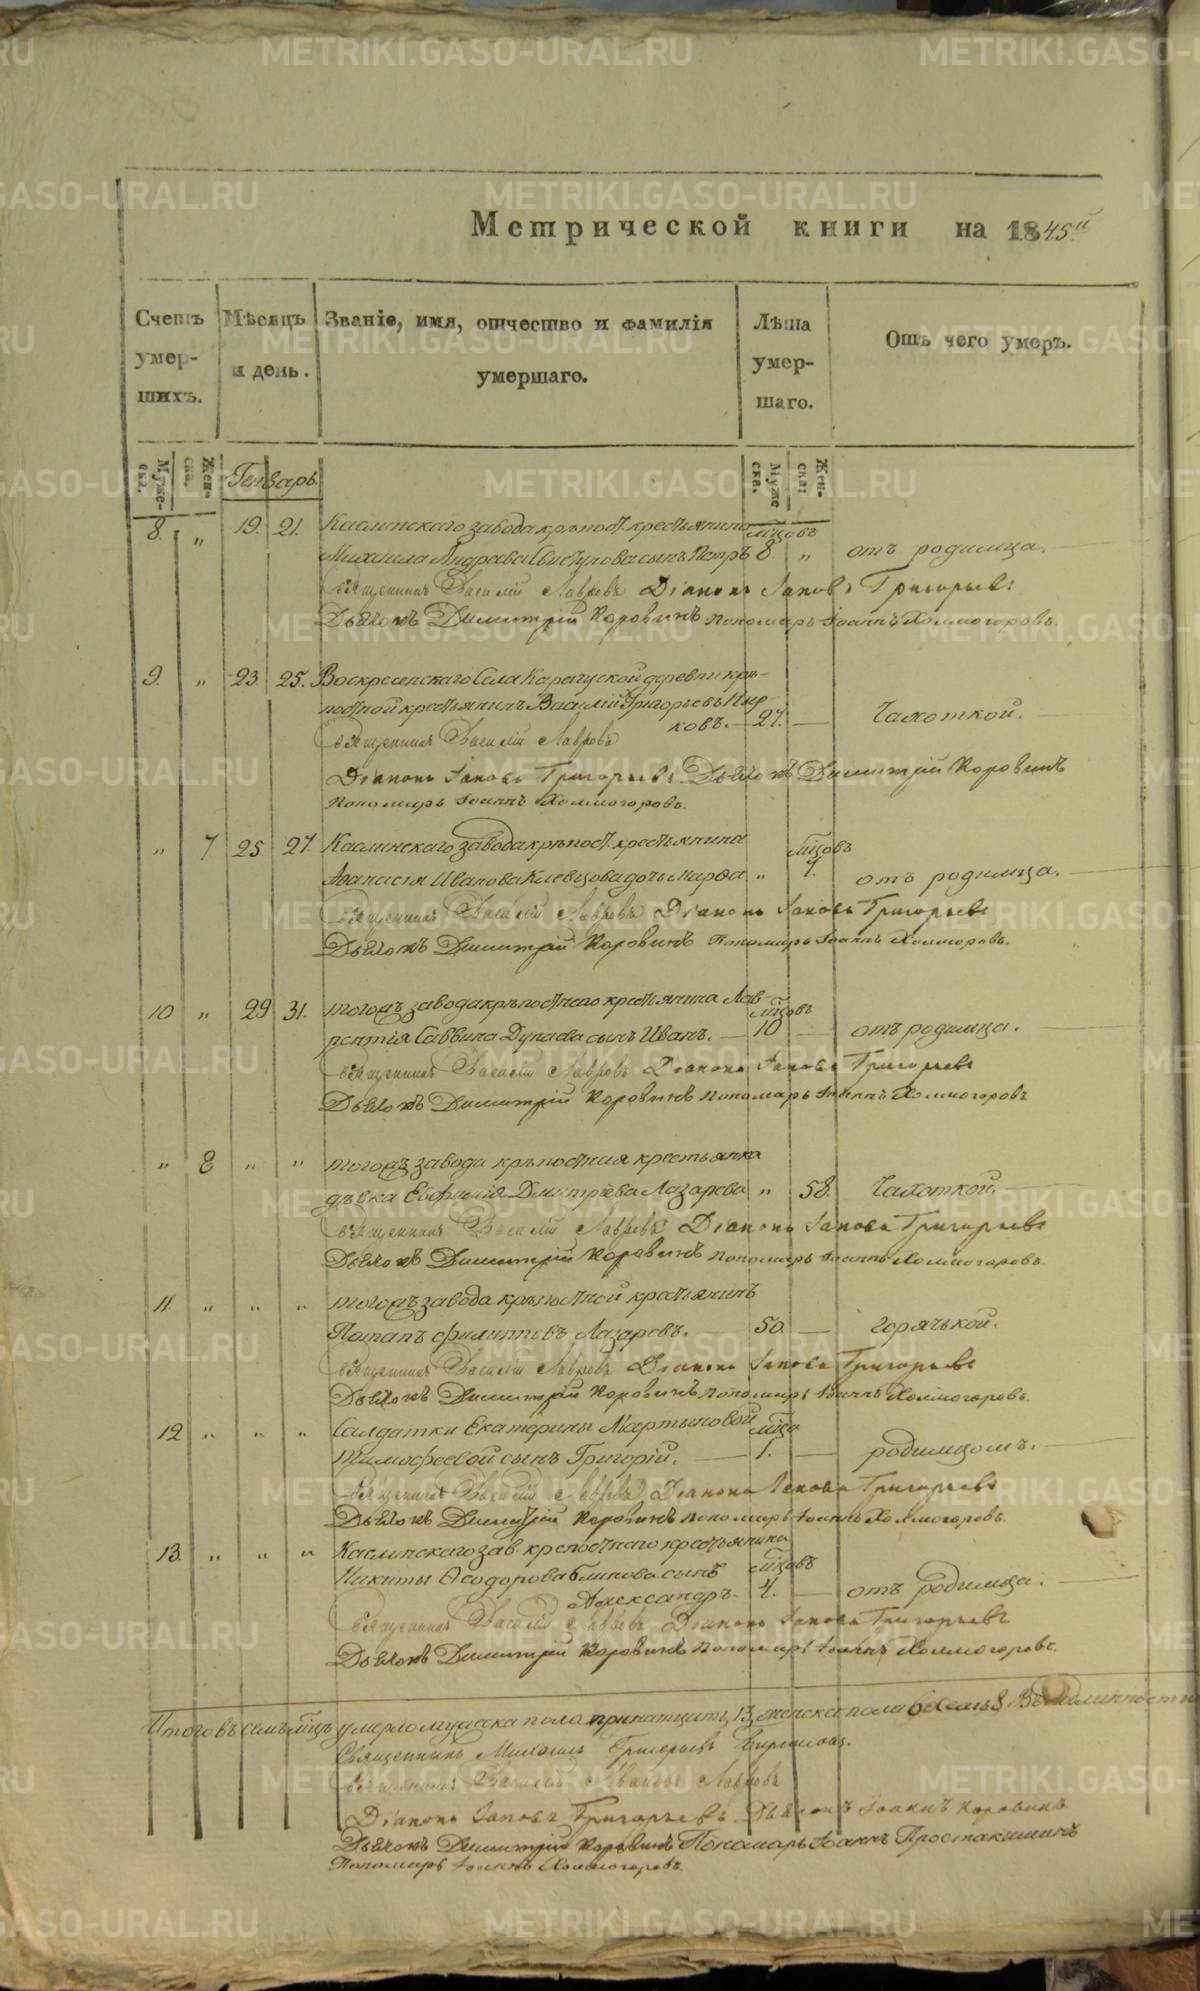 Метрической книги на 1845й
Счетъ умер- шихъ.
Мѣсяцъ и день.
Званіе, имя, отчество и фамилія умершаго.
Лѣта умер- шаго.
Отъ чего умеръ.
Муже- ска.
Жен- ска.
Генварь
Муже ска.
Жен- ска.
8. „ 19. 21. Каслинскаго завода крѣпост. крестьянина мѣцовъ
Михаила Андреева сынъ Петръ 8. „ отъ родимца.
Священникъ Василій Лавровъ Діаконъ Іаковъ Григорьевъ
Дьячокъ Димитрій Коровинъ Пономарь Іоаннъ Холмогоровъ.
9. „ 23 25. Воскресенскаго Села деревни крѣ-
постной крестьянинъ Василій Григорьевъ
ковъ. — 27. — Чахоткой.
Священникъ Василій Лавровъ
Діаконъ Іаковъ Григорьевъ Дьячокъ Димитрій Коровинъ
Пономарь Іоаннъ Холмогоровъ.
„ 7 25 27. Каслинскаго завода крѣпост. крестьянина мѣцовъ
Аѳанасія Иванова Клевцова дочь Марѳа „ отъ родимца.
Священникъ Василій Лавровъ Діаконъ Іаковъ Григорьевъ
Дьячокъ Димитрій Коровинъ Пономарь Іоаннъ Холмогоровъ.
10 „ 29 31. тогожъ завода крѣпостнаго крестьянина Лав- мѣцовъ
рентія Саввина Дунаева сынъ Иванъ. — 10 — отъ родимца.
Священникъ Василій Лавровъ Діаконъ Іаковъ Григорьевъ
Дьячокъ Димитрій Коровинъ Пономарь Іоаннъ Холмогоровъ
„ 8 „ „ тогожъ завода крѣпостная крестьянка
дѣвка Евфимія Дмитріева Лазарева „ 58. Чахоткой.
Священникъ Василій Лавровъ Діаконъ Іаковъ Григорьевъ
Дьячокъ Димитрій Коровинъ Пономарь Іоаннъ Холмогоровъ.
11. „ „ „ тогожъ завода крѣпостной крестьянинъ
Потапъ Филипповъ Лазаревъ. — 50. — горячькой.
Священникъ Василій Лавровъ Діаконъ Іаковъ Григорьевъ
Дьячокъ Димитрій Коровинъ Пономарь Іоаннъ Холмогоровъ.
12 „ „ „ Салдатки Екатерины Мартыновой мѣца
Тимофеевой сынъ Григорій. — 1. — родимцомъ.
Священникъ Василій Лавровъ Діаконъ Іаковъ Григорьевъ
Дьячокъ Димитрій Коровинъ Пономарь Іоаннъ Холмогоровъ.
13. „ „ „ Каслинскаго зав. крепостнаго крестьянина мѣцовъ
Никиты Ѳеодорова Блинова сынъ
Александръ. 4. — отъ родимца.
Священникъ Василій Лавровъ Діаконъ Іаковъ Григорьевъ
Дьячокъ Димитрій Коровинъ Пономарь Іоаннъ Холмогоровъ.
Итого въ семъ мѣцѣ умерло мужска пола тринатцать, 13, женска пола 8
Священникъ Михаилъ Григорьевъ
Священникъ Василій Лавровъ
Діаконъ Іаковъ Григорьевъ Дьячокъ Іоаннъ Коровинъ
Дьячокъ Димитрій Коровинъ Пономарь Іоаннъ Простакишинъ
Пономарь Іоаннъ Холмогоровъ.
METRIKI.GASO-URAL.RU